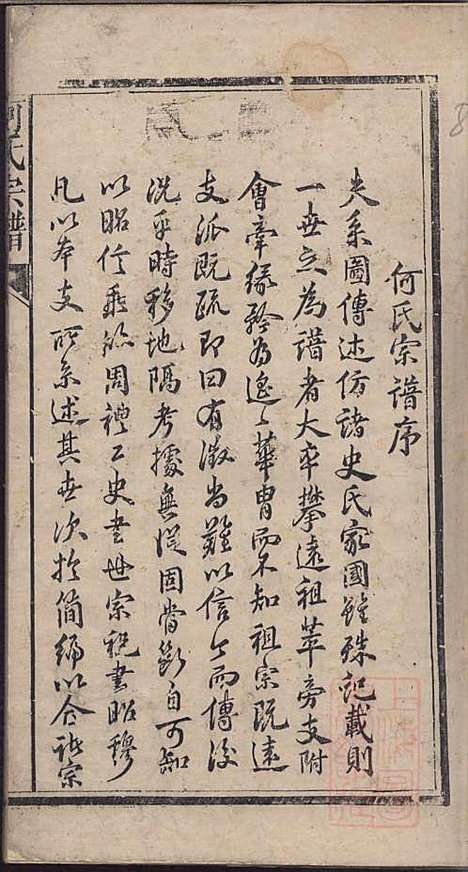 何氏宗譜序
夫系圖傳述仿諸史氏家國雖殊記載則
一世之為譜者大卒攀遠祖萃旁支附
會牽緣矜為遙遙華胄而不知祖宗既遠
支派既疏即曰有徵尚難以信今而傳後
況乎時移地隔考據無從固嘗斷自可知
以昭信乘俗周禮工史書世宗祝書昭穆
凡以本支所系述其世次於簡編以合詣宗
何氏宗譜